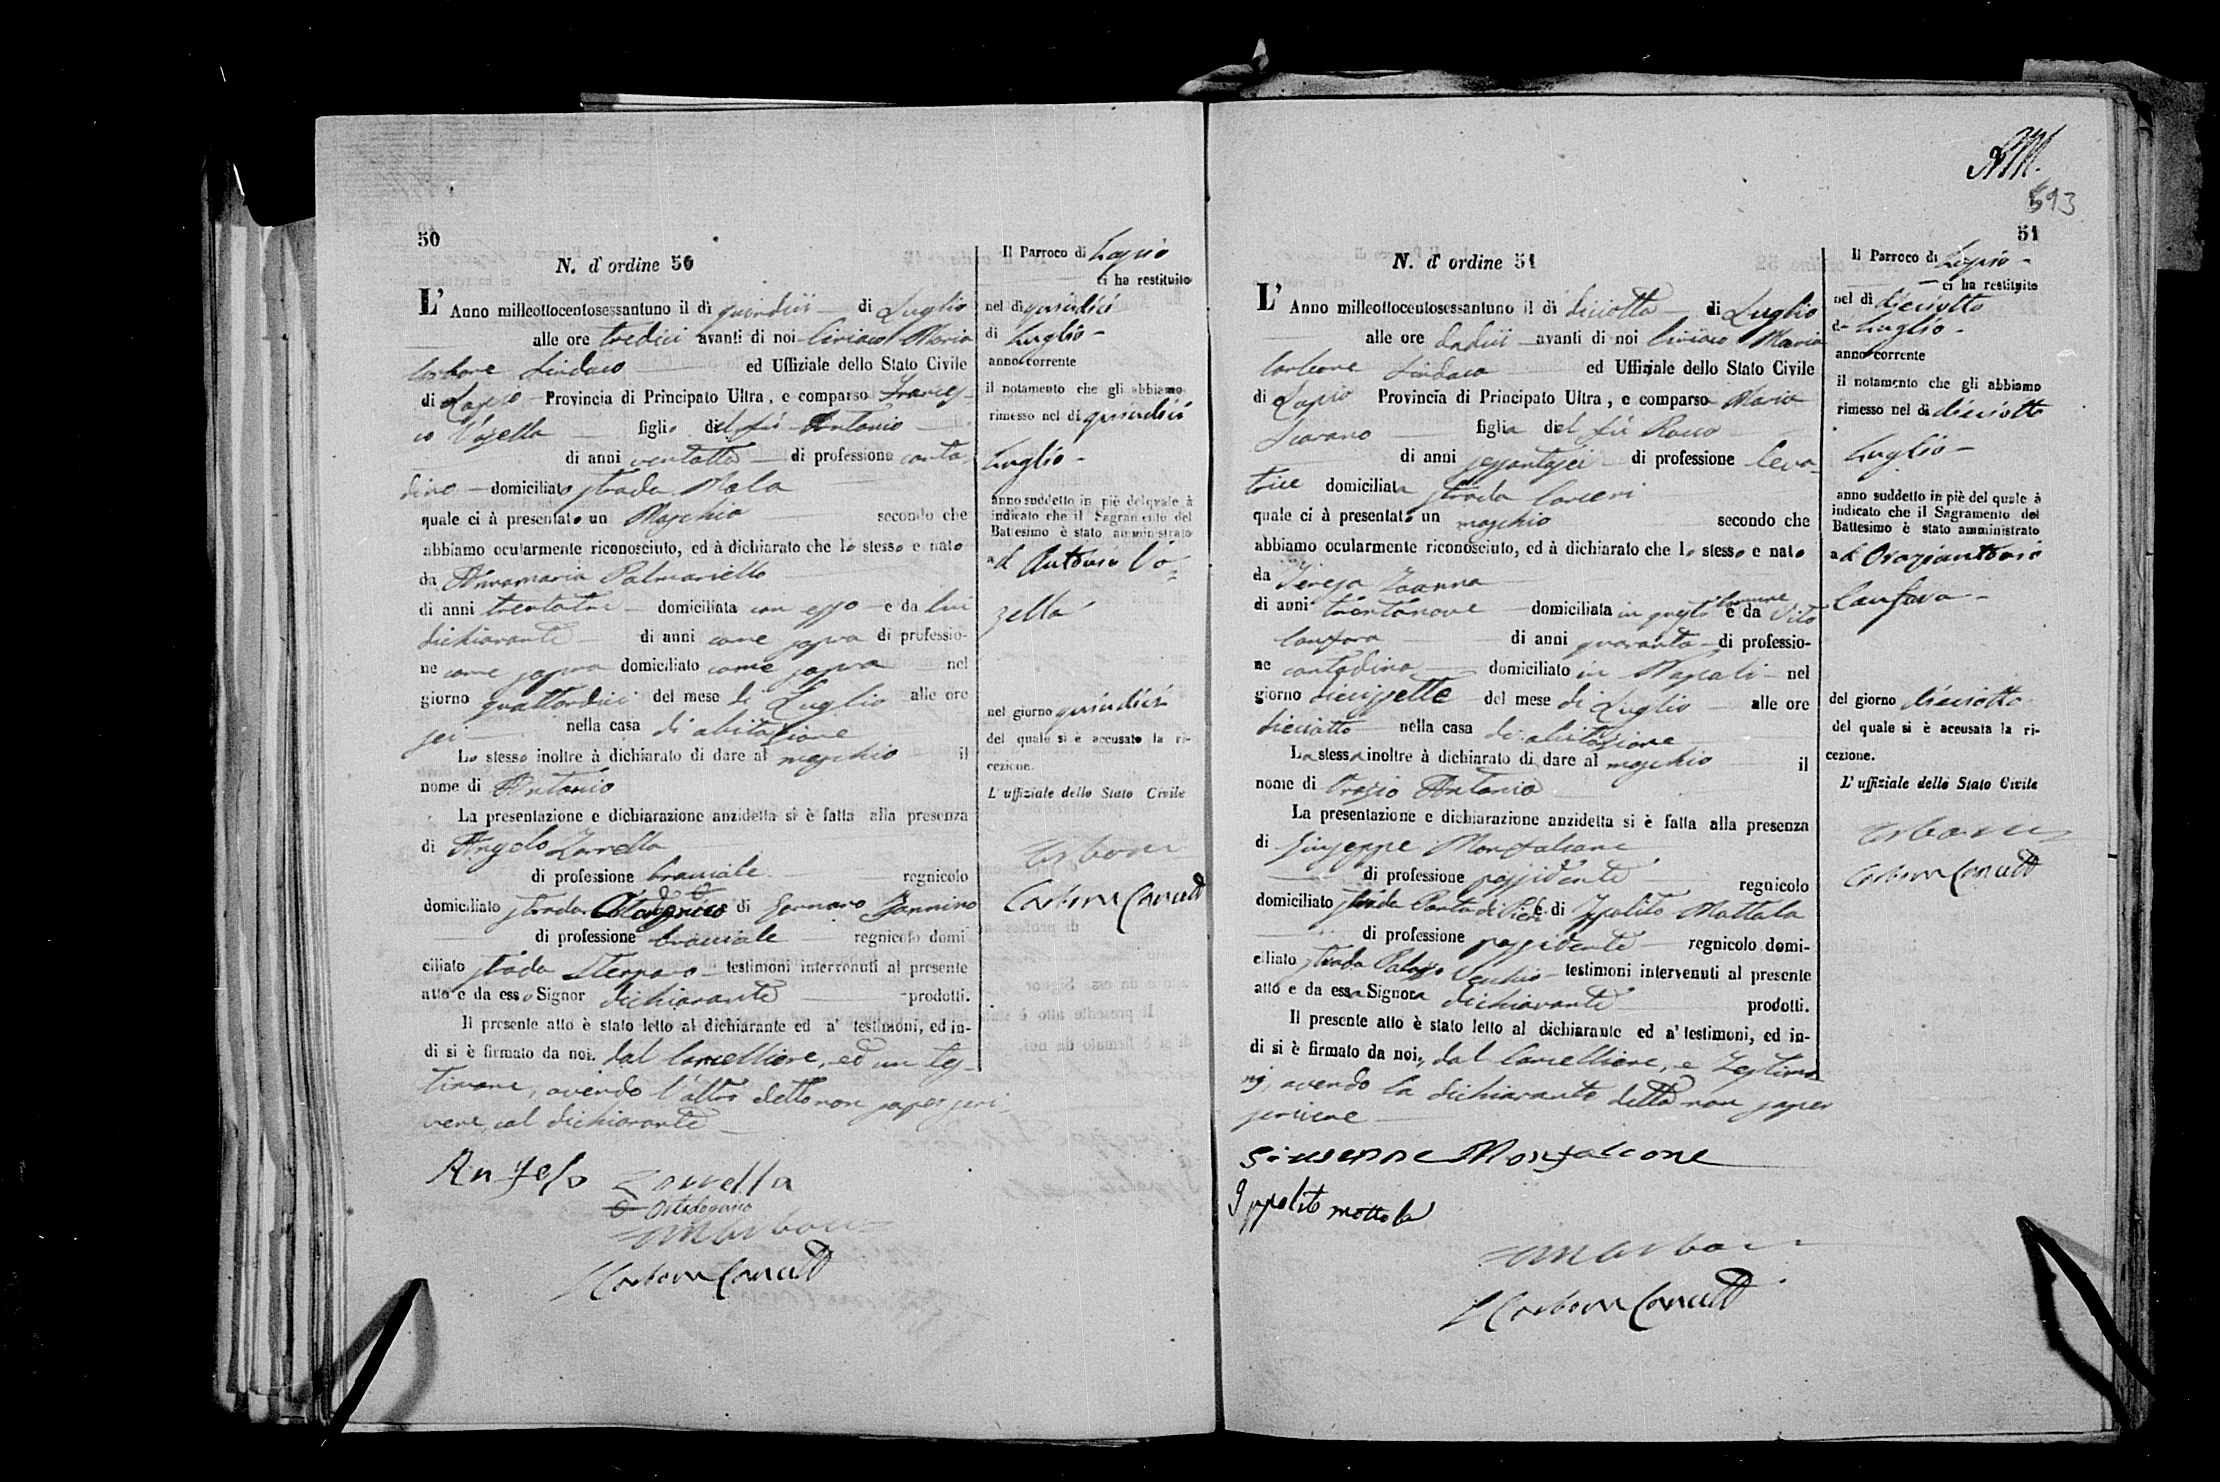 50
N. d' ordine 50
L' Anno milleottocentosessantuno il dì quindici di Luglio
alle ore tredici avanti di noi Ciriaco Maria
Carbone Sindaco ed Uffiziale dello Stato Civile
di Lapio Provincia di Principato Ultra, e comparso Frances-
co figlio del fù Antonio
di anni ventotto di professione conta-
dino domiciliato strada Mala
quale ci à presentato un Maschio secondo che
abbiamo ocularmente riconosciuto, ed à dichiarato che lo stesso e nato
da Annamaria Palmariello
di anni trentatre domiciliata con esso e da lui
dichiarante di anni come sopra di professio-
ne come sopra domiciliato come sopra nel
giorno quattordici del mese di Luglio alle ore
sei nella casa di abitazione
Lo stesso inoltre à dichiarato di dare al maschio il
nome di Antonio
La presentazione e dichiarazione anzidetta si è fatta alla presenza
di Angelo Zarrella
di professione bracciale regnicolo
domiciliato strada di Gennaro
di professione bracciale regnicolo domi-
ciliato strada testimoni intervenuti al presente
atto e da esso Signor dichiarante prodotti.
Il presente atto è stato letto al dichiarante ed a' testimoni, ed in-
di si è firmato da noi, dal Cancelliere, ed un tes-
timone, avendo l'altro detto non saper scri-
vere, col dichiarante
Angelo Zarrella
Carbone Cancell
Il Parroco di Lapio
ci ha restituito
nel dì quindici
di Luglio
anno corrente
il notamento che gli abbiamo
rimesso nel dì quindici
Luglio
anno suddetto in piè del quale à
indicato che il Sagramento del
Battesimo è stato amministrato
ad Antonio Vo-
zella
nel giorno quindici
del quale si è accusato la ri-
cezione.
L' uffiziale dello Stato Civile
Carbone
Carbone Cancell
593
51
N. d' ordine 51
L' Anno milleottocentosessantuno il dì diciotto di Luglio
alle ore dodici avanti di noi Ciriaco Maria
Carbone Sindaco ed Uffiziale dello Stato Civile
di Lapio Provincia di Principato Ultra, e comparso Maria
figlia del fù Rocco
di anni sessantasei di professione leva-
trice domiciliata strada Carceri
quale ci à presentato un maschio secondo che
abbiamo ocularmente riconosciuto, ed à dichiarato che lo stesso e nato
da Teresa
di anni trentanove domiciliata in questo Comune e da Vito
Canfora di anni quaranta di professio-
ne contadino domiciliato in Napoli nel
giorno diciassette del mese di Luglio alle ore
diciotto nella casa di abitazione
La stessa inoltre à dichiarato di dare al maschio il
nome di Orazio Antonio
La presentazione e dichiarazione anzidetta si è fatta alla presenza
di Giuseppe Monfalcone
di professione possidente regnicolo
domiciliato strada e di Ippolito Mottola
di professione possidente regnicolo domi-
ciliato strada Palazzo Vecchio testimoni intervenuti al presente
atto e da essa Signora dichiarante prodotti.
Il presente atto è stato letto al dichiarante ed a' testimoni, ed in-
di si è firmato da noi, dal Cancelliere, e Testimo-
nj, avendo la dichiarante detto non saper
scrivere
Giuseppe Monfalcone
Ippolito Mottola
Carbone Cancell
Il Parroco di Lapio
ci ha restituito
nel dì diciotto
di Luglio
anno corrente
il notamento che gli abbiamo
rimesso nel dì diciotto
Luglio
anno suddetto in piè del quale à
indicato che il Sagramento del
Battesimo è stato amministrato
ad Oraziantonio
Canfora
del giorno diciotto
del quale si è accusata la ri-
cezione.
L' uffiziale dello Stato Civile
Carbone
Carbone Cancell